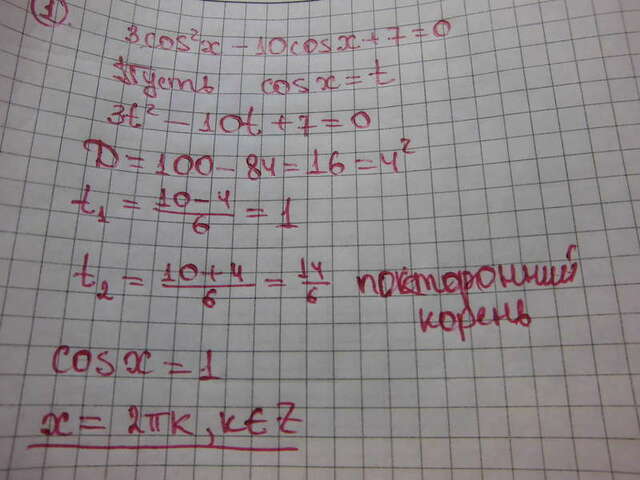 1.
3cos²x - 10cosx + 7 = 0
Пусть cosx = t
3t² - 10t + 7 = 0
D = 100 - 84 = 16 = 4²
t₁ = (10 - 4)/6 = 1
t₂ = (10 + 4)/6 = 14/6 посторонний
корень
cosx = 1
x = 2πk, k∈Z